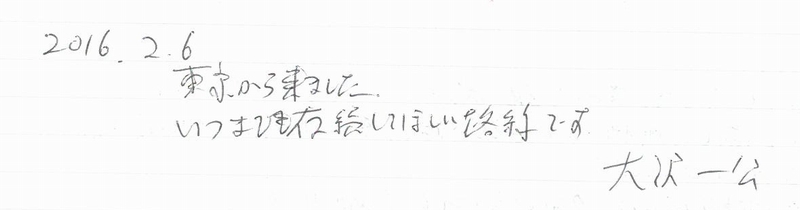 2016.2.6
東京から来ました.
いつまでも存続してほしい路線です
大沢一公